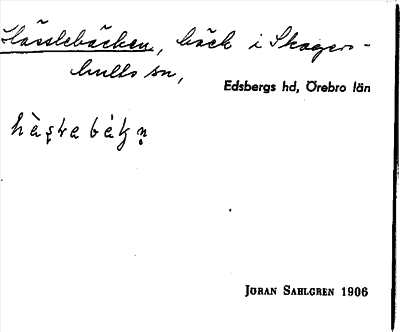 Hässlebäcken, bäck i Skagers-
hults sn,
Edsbergs hd, Örebro län
JÖRAN SAHLGREN 1906